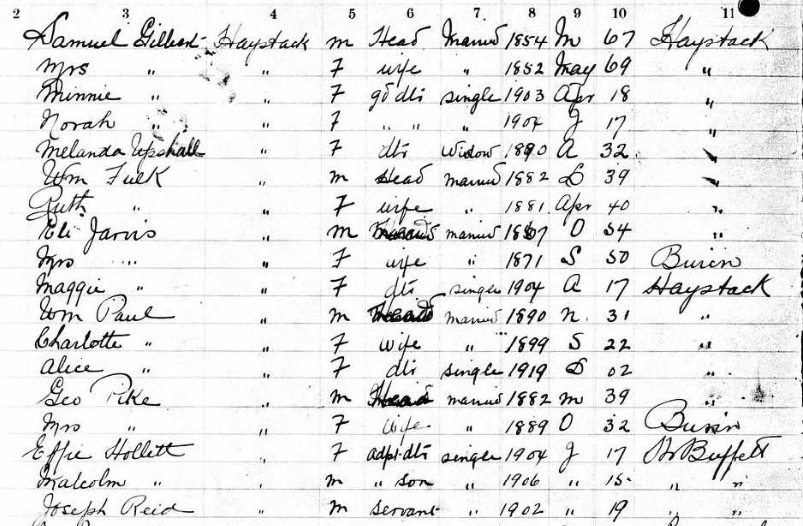 2 3 4 5 6 7 8 9 10 11
Samuel Gilbert Haystack m Head Married 1854 M 67 Haystack
Mrs " " F wife " 1852 May 69 "
Minnie " " F gd dtr single 1903 Apr 18 "
Norah " " F " " " 1904 J 17 "
Melanda Upshall " F dtr Widow 1890 A 32 "
Wm Fulk " m Head married 1882 D 39 "
Ruth " " F wife " 1881 Apr 40 "
Eli Jarvis " m married 1867 O 54 "
Mrs " " F wife " 1871 S 50 Burin
Maggie " " F dtr single 1904 A 17 Haystack
Wm Paul " m Head married 1890 n 31 "
Charlotte " " F wife " 1899 S 22 "
Alice " " F dtr single 1919 D 02 "
Geo Pike " m Head married 1882 m 39 "
Mrs " " F wife " 1889 O 32 Burin
Effie Hollett " F adpt dtr single 1904 J 17 Buffett
Malcolm " " m " son " 1906 " 15 " "
Joseph Reid " m servant " 1902 " 19 " "